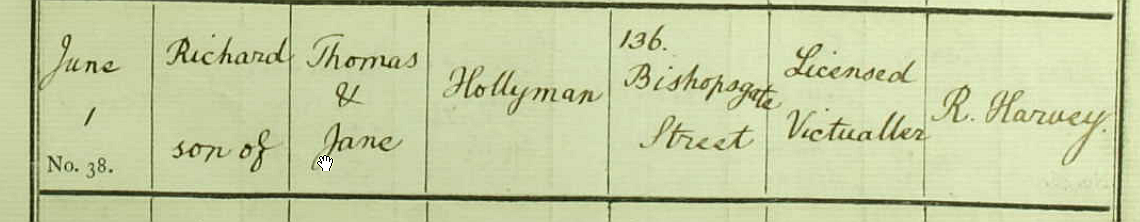 June
1
No. 38.
Richard
son of
Thomas
&
Jane
Hollyman
136.
Bishopsgate
Street
Licensed
Victualler
R. Harvey.